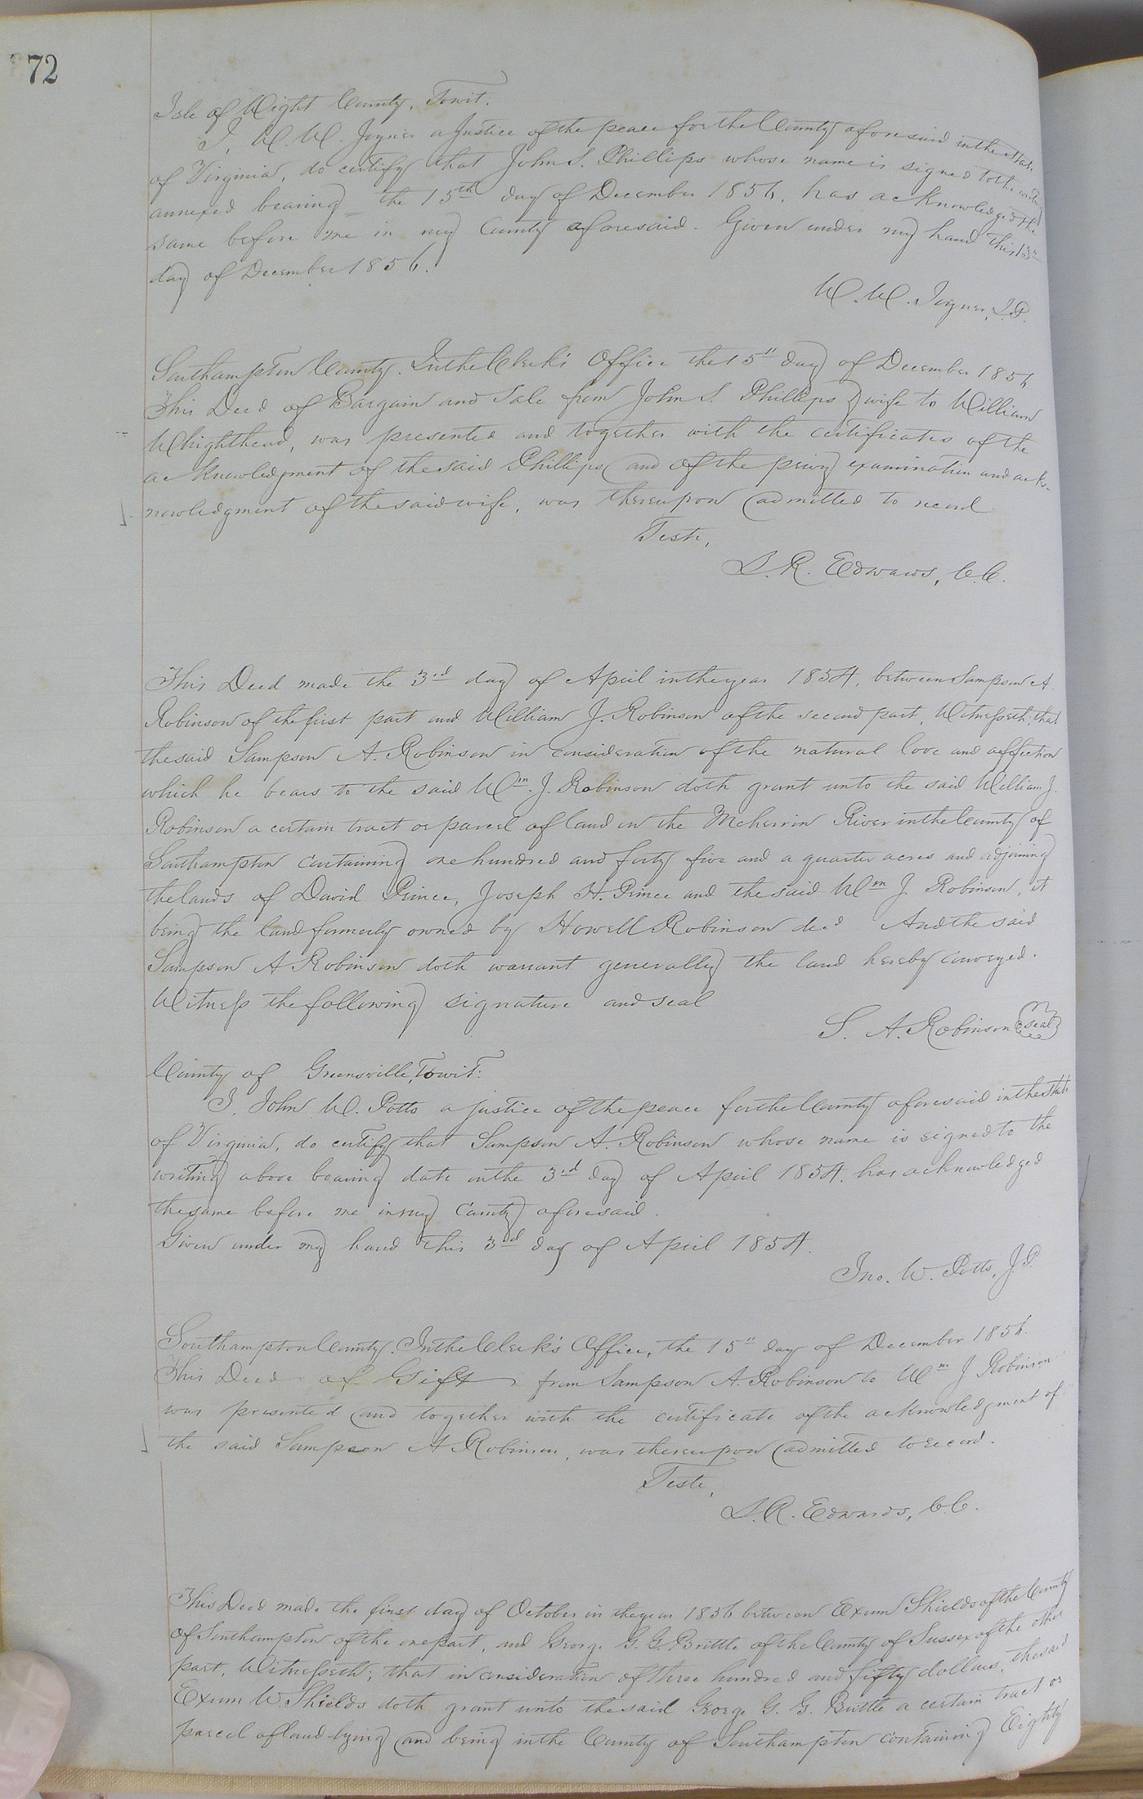 72
Isle of Wight County, Towit:
I, W. W. Joyner a Justice of the peace for the County aforesaid in the State
of Virginia, do certify that John S. Phillips whose name is signed to the writing
annexed bearing the 15th day of December 1856, has acknowledged the
same before me in my County aforesaid. Given under my hand this 15th
day of December 1856.
W. W. Joyner, J.P.
Southampton County. In the Clerk's Office the 15th day of December 1856
This Deed of Bargain and Sale from John S. Phillips & wife to William
Whighthead, was presented and together with the certificates of the
acknowledgment of the said Phillips and of the privy examination and ack-
nowledgment of the said wife, was thereupon admitted to record
Teste,
L. R. Edwards, C.C.
This Deed made the 3rd day of April in the year 1854, between Sampson A.
Robinson of the first part and William J. Robinson of the second part, Witnesseth; that
the said Sampson A. Robinson in consideration of the natural love and affection
which he bears to the said Wm. J. Robinson doth grant unto the said William J.
Robinson a certain tract or parcel of land on the Meherrin River in the County of
Southampton containing one hundred and forty five and a quarter acres and adjoining
the lands of David Prince, Joseph H. Prince and the said Wm J. Robinson, it
being the land formerly owned by Howell Robinson decd And the said
Sampson A Robinson doth warrant generally the land hereby conveyed.
Witness the following signature and seal
S. A. Robinson seal
County of Greensville, Towit:
I, John W. Potts a justice of the peace for the County aforesaid in the State
of Virginia, do certify that Sampson A. Robinson whose name is signed to the
writing above bearing date on the 3rd day of April 1854, has acknowledged
the same before me in my County aforesaid.
Given under my hand this 3rd day of April 1854.
Jno. W. Potts, J.P.
Southampton County. In the Clerk's Office, the 15th day of December 1856.
This Deed of Gift from Sampson A. Robinson to Wm J Robinson
was presented and together with the certificate of the acknowledgment of
the said Sampson A Robinson, was thereupon admitted to record.
Teste,
L. R. Edwards, C.C.
This Deed made the first day of October in the year 1856 between Exum Shields of the County
of Southampton of the one part, and George G. G. Brittle of the County of Sussex of the other
part, Witnesseth; that in consideration of three hundred and fifty dollars, the said
Exum W Shields doth grant unto the said George G. G. Brittle a certain tract or
parcel of land lying and being in the County of Southampton containing Eighty